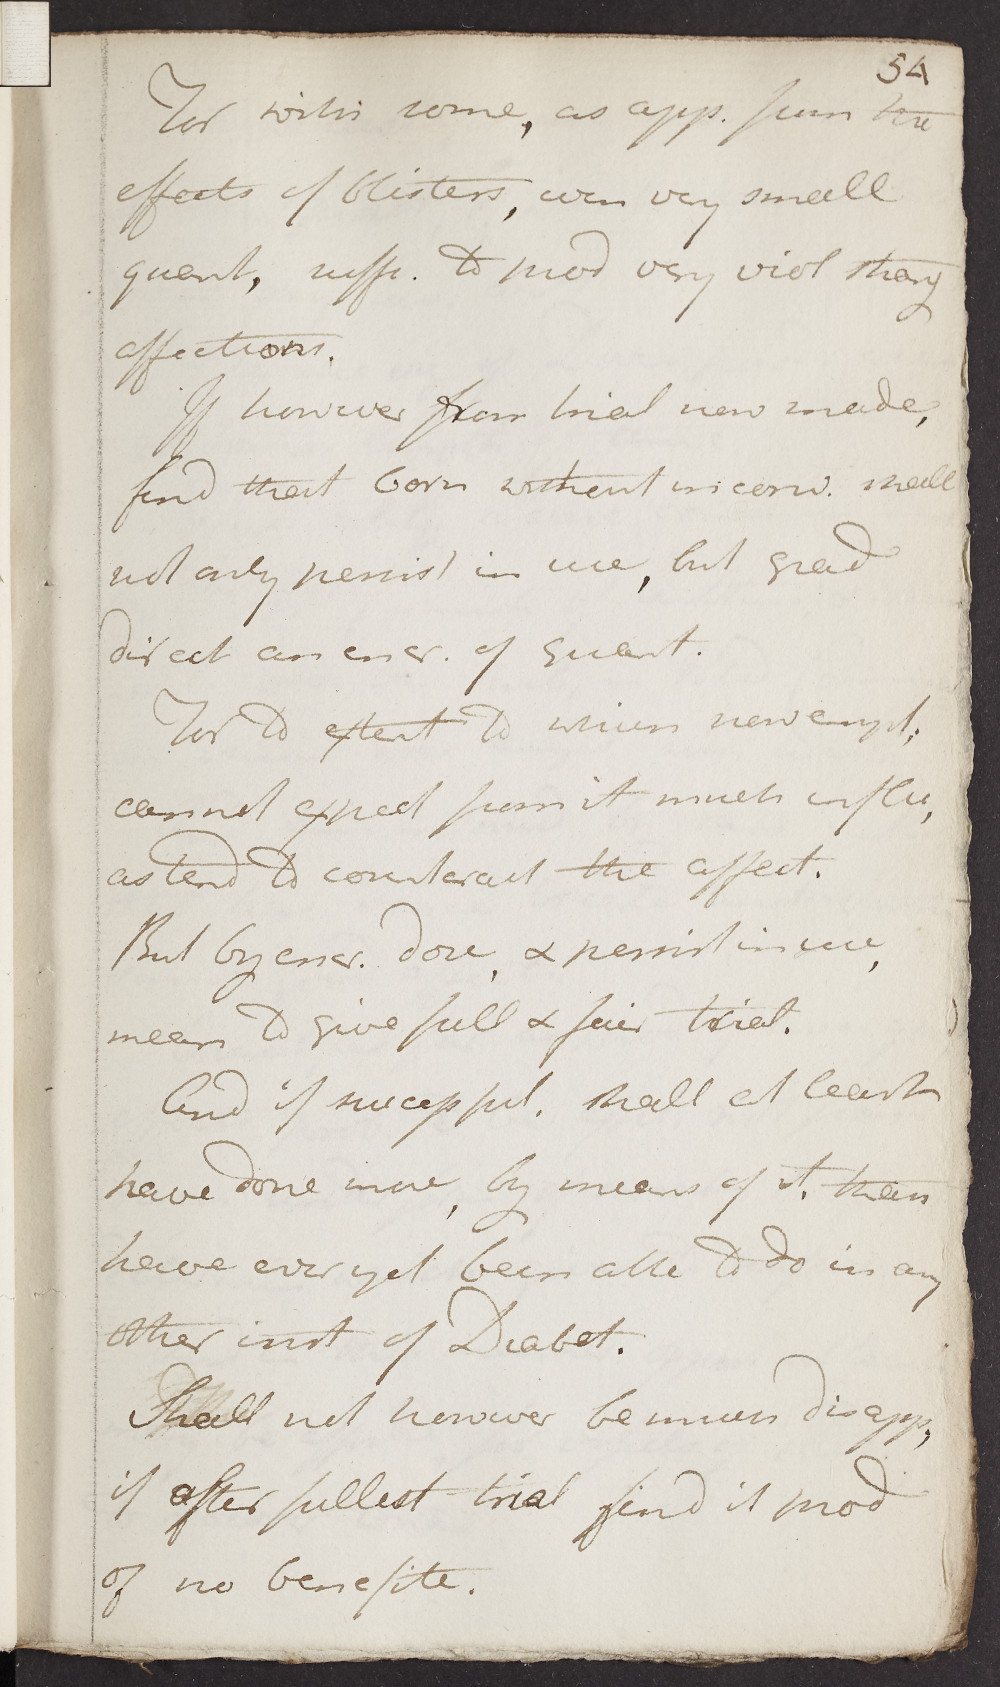 54
For with some, as app. from the
effects of blisters, even very small
quant, suffi. to prod very viol strang
affections.
If however from trial now made,
find that born without inconv. shall
not only persist in use, but grad
direct an encr. of quant.
For to extent to which now empl,
cannot expect from it much influ,
as tend to counteract the affect.
But by encr. dose, & persist in use,
mean to give full & fair trial.
And if successful. shall at least
have done more, by means of it. than
have ever yet been able to do in any
other inst of Diabet.
Shall not however be much disapp,
if after fullest trial find it prod
of no benefite.